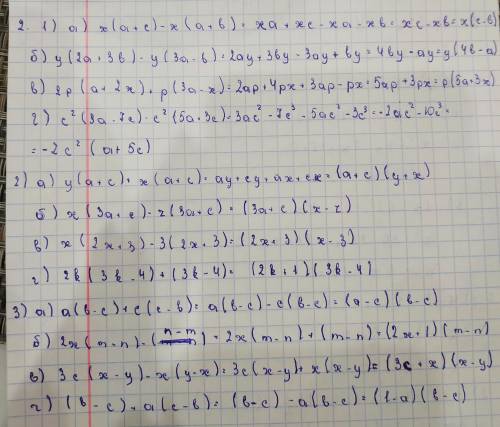 2. 1) а) x(a+c)-x(a+b)= xa+xc-xa-xb=xc-xb=x(c-b)
б) y(2a+3b)-y(3a-b)=2ay+3by-3ay+by=4by-ay=y(4b-a)
в) 2p(a+2x)+p(3a-x)=2ap+4px+3ap-px=5ap+3px=p(5a+3x)
г) c²(3a-7c)-c²(5a+3c)=3ac²-7c³-5ac²-3c³=-2ac²-10c³=
=-2c²(a+5c)
2) а) y(a+c)+x(a+c)=ay+cy+ax+cx=(a+c)(y+x)
б) x(3a+c)-z(3a+c)=(3a+c)(x-z)
в) x(2x+3)-3(2x+3)=(2x+3)(x-3)
г) 2k(3k-4)+(3k-4)=(2k+1)(3k-4)
3) а) a(b-c)+c(c-b)=a(b-c)-c(b-c)=(a-c)(b-c)
б) 2x(m-n)-(n-m)=2x(m-n)+(m-n)=(2x+1)(m-n)
в) 3c(x-y)-x(y-x)=3c(x-y)+x(x-y)=(3c+x)(x-y)
г) (b-c)+a(c-b)=(b-c)-a(b-c)=(1-a)(b-c)